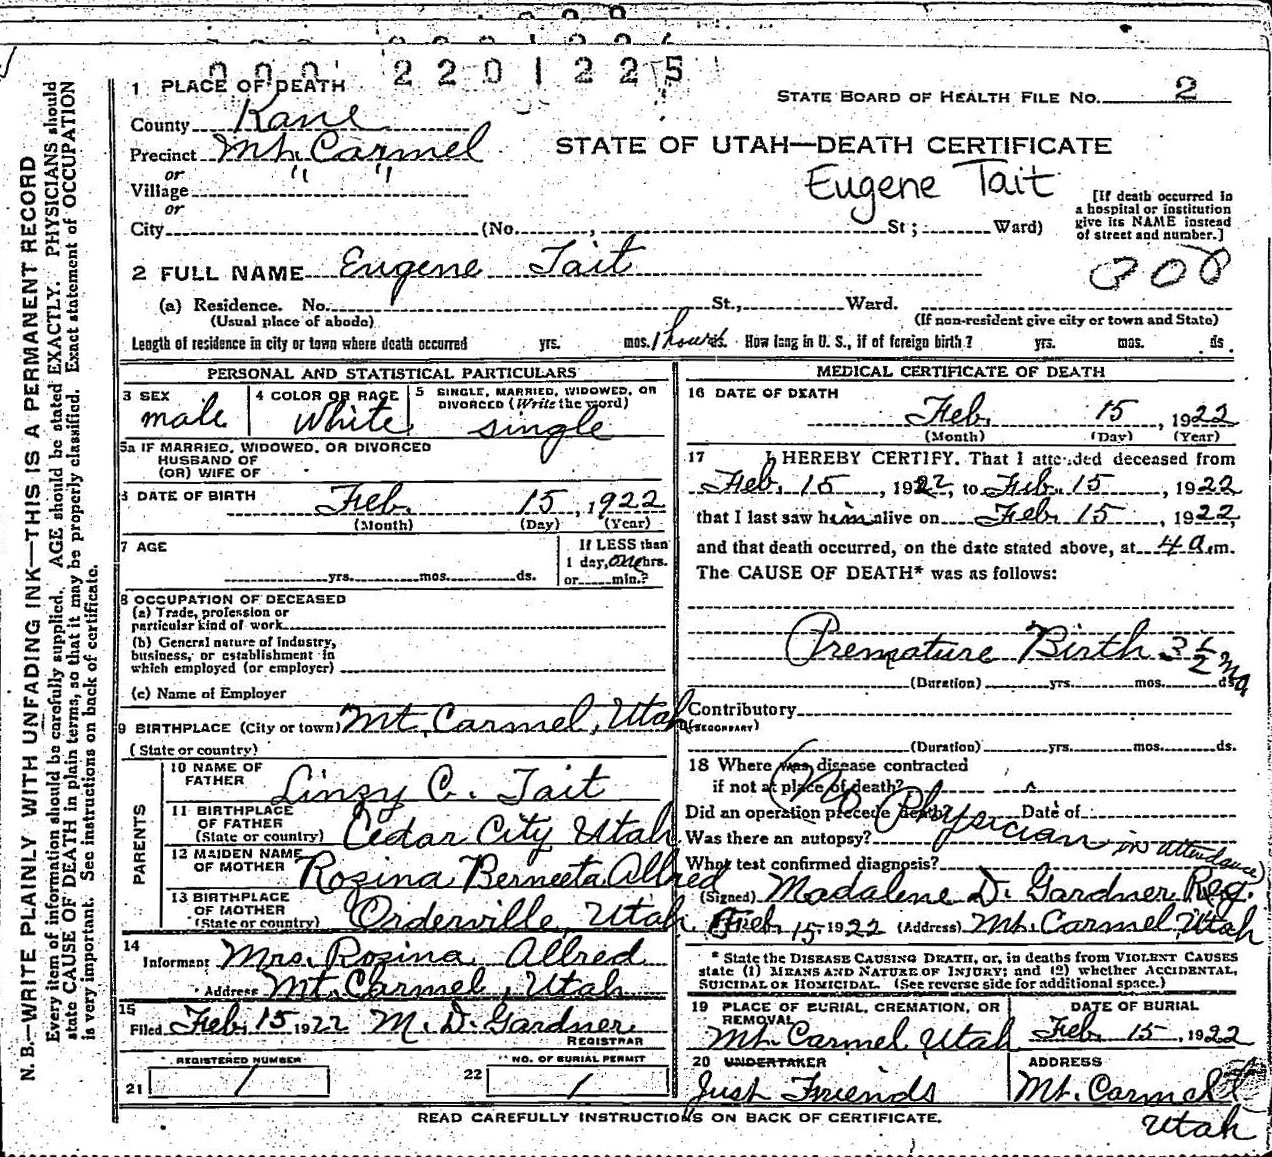 000 2201225
1 PLACE OF DEATH
STATE BOARD OF HEALTH FILE NO. 2
County Kane
STATE OF UTAH—DEATH CERTIFICATE
Precinct Mt. Carmel
or
Village " "
Eugene Tait
or
City (No. , St; Ward)
[If death occurred in
a hospital or institution
give its NAME instead
of street and number.]
2 FULL NAME Eugene Tait
(a) Residence. No. St., Ward.
(Usual place of abode) (If non-resident give city or town and State)
Length of residence in city or town where death occurred yrs. mos. 1 hours. How long in U. S., if of foreign birth? yrs. mos. ds
PERSONAL AND STATISTICAL PARTICULARS
3 SEX
male
4 COLOR OR RACE
White
5 SINGLE, MARRIED, WIDOWED, OR
DIVORCED (Write the word)
single
5a IF MARRIED, WIDOWED, OR DIVORCED
HUSBAND OF
(OR) WIFE OF
6 DATE OF BIRTH Feb. 15, 1922
(Month) (Day) (Year)
7 AGE
yrs. mos. ds.
If LESS than
1 day, one hrs.
or min.?
8 OCCUPATION OF DECEASED
(a) Trade, profession or
particular kind of work
(b) General nature of industry,
business, or establishment in
which employed (or employer)
(c) Name of Employer
9 BIRTHPLACE (City or town) Mt. Carmel, Utah
(State or country)
PARENTS
10 NAME OF
FATHER Linzy C. Tait
11 BIRTHPLACE
OF FATHER
(State or country) Cedar City Utah
12 MAIDEN NAME
OF MOTHER Rozina Berneeta Allred
13 BIRTHPLACE
OF MOTHER
(State or country) Orderville, Utah
14
Informant Mrs. Rozina Allred
Address Mt. Charmel, Utah
15
Filed Feb. 15 1922 M. D. Gardner
REGISTRAR
REGISTERED NUMBER
21 1
NO. OF BURIAL PERMIT
22 1
MEDICAL CERTIFICATE OF DEATH
16 DATE OF DEATH
Feb. 15, 1922
(Month) (Day) (Year)
17 I HEREBY CERTIFY. That I attended deceased from
Feb. 15, 1922, to Feb. 15, 1922
that I last saw him alive on Feb 15, 1922,
and that death occurred, on the date stated above, at 4 a.m.
The CAUSE OF DEATH* was as follows:
Premature Birth 3 1/2 mo
(Duration) yrs. mos. ds
Contributory
(SECONDARY)
(Duration) yrs. mos. ds.
18 Where was disease contracted
if not at place of death?
Did an operation precede death? Date of
Was there an autopsy?
(No Physician in attendance)
What test confirmed diagnosis?
(Signed) Madalene D. Gardner Reg.
Feb 15 1922 (Address) Mt. Carmel, Utah
* State the DISEASE CAUSING DEATH, or, in deaths from VIOLENT CAUSES
state (1) MEANS AND NATURE OF INJURY; and (2) whether ACCIDENTAL,
SUICIDAL OR HOMICIDAL. (See reverse side for additional space.)
19 PLACE OF BURIAL, CREMATION, OR
REMOVAL
Mt. Carmel, Utah
DATE OF BURIAL
Feb. 15, 1922
20 UNDERTAKER
Just Friends
ADDRESS
Mt. Carmel
Utah
READ CAREFULLY INSTRUCTIONS ON BACK OF CERTIFICATE.
N. B.—WRITE PLAINLY WITH UNFADING INK—THIS IS A PERMANENT RECORD
Every item of information should be carefully supplied. AGE should be stated EXACTLY. PHYSICIANS should
state CAUSE OF DEATH in plain terms, so that it may be properly classified. Exact statement of OCCUPATION
is very important. See instructions on back of certificate.